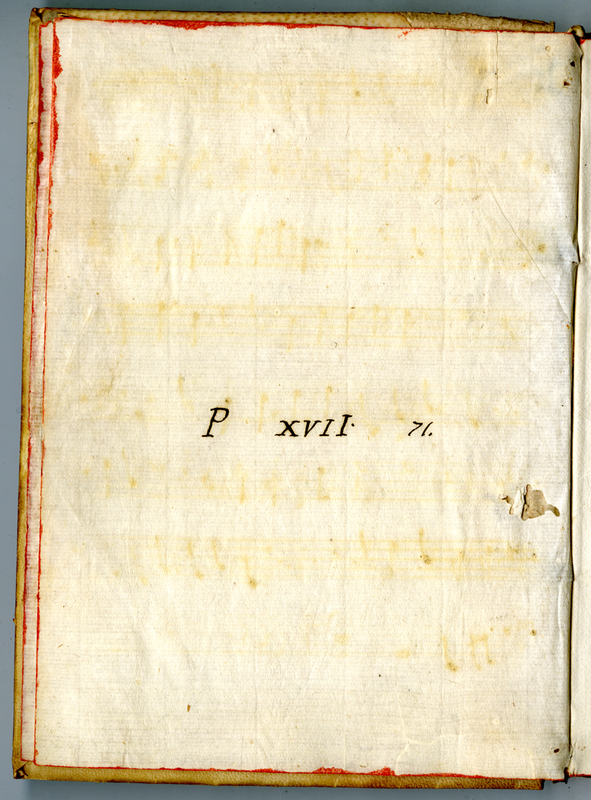 P XVII. 71.